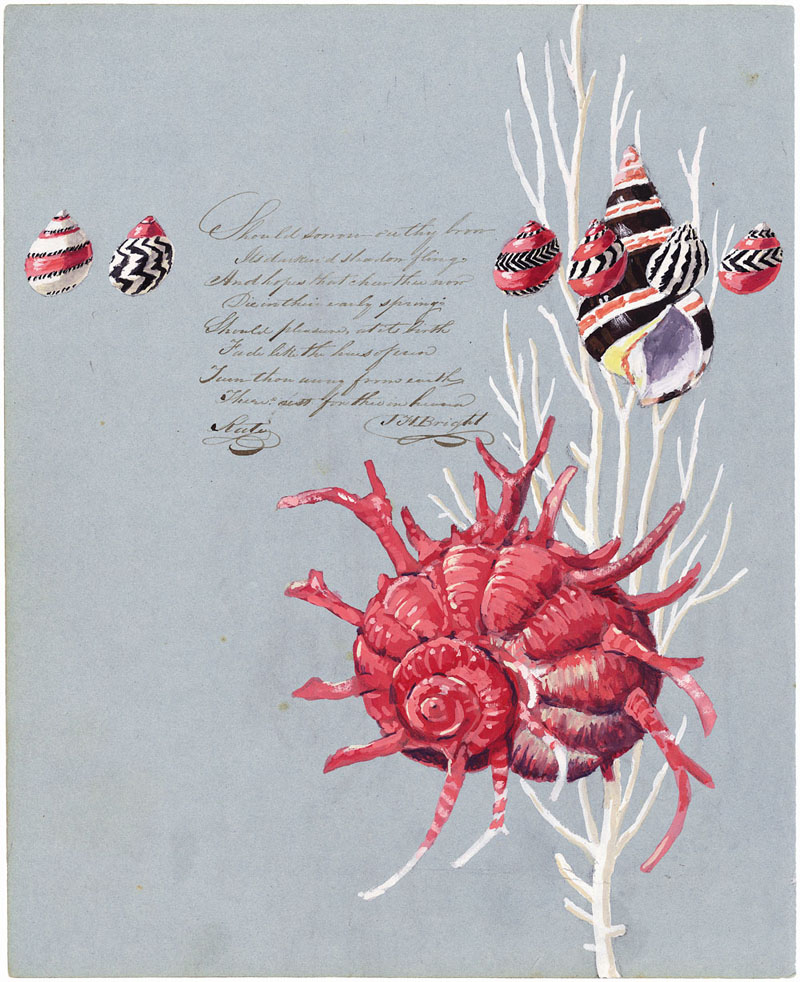 Should sorrow o'er thy brow
Its darken'd shadow fling
And hopes that cheer thee now
Die in their early spring
Should pleasure, at its birth
Fade like the hues of even
Turn thou away from earth
There's rest for thee in heaven
Kate J H Bright